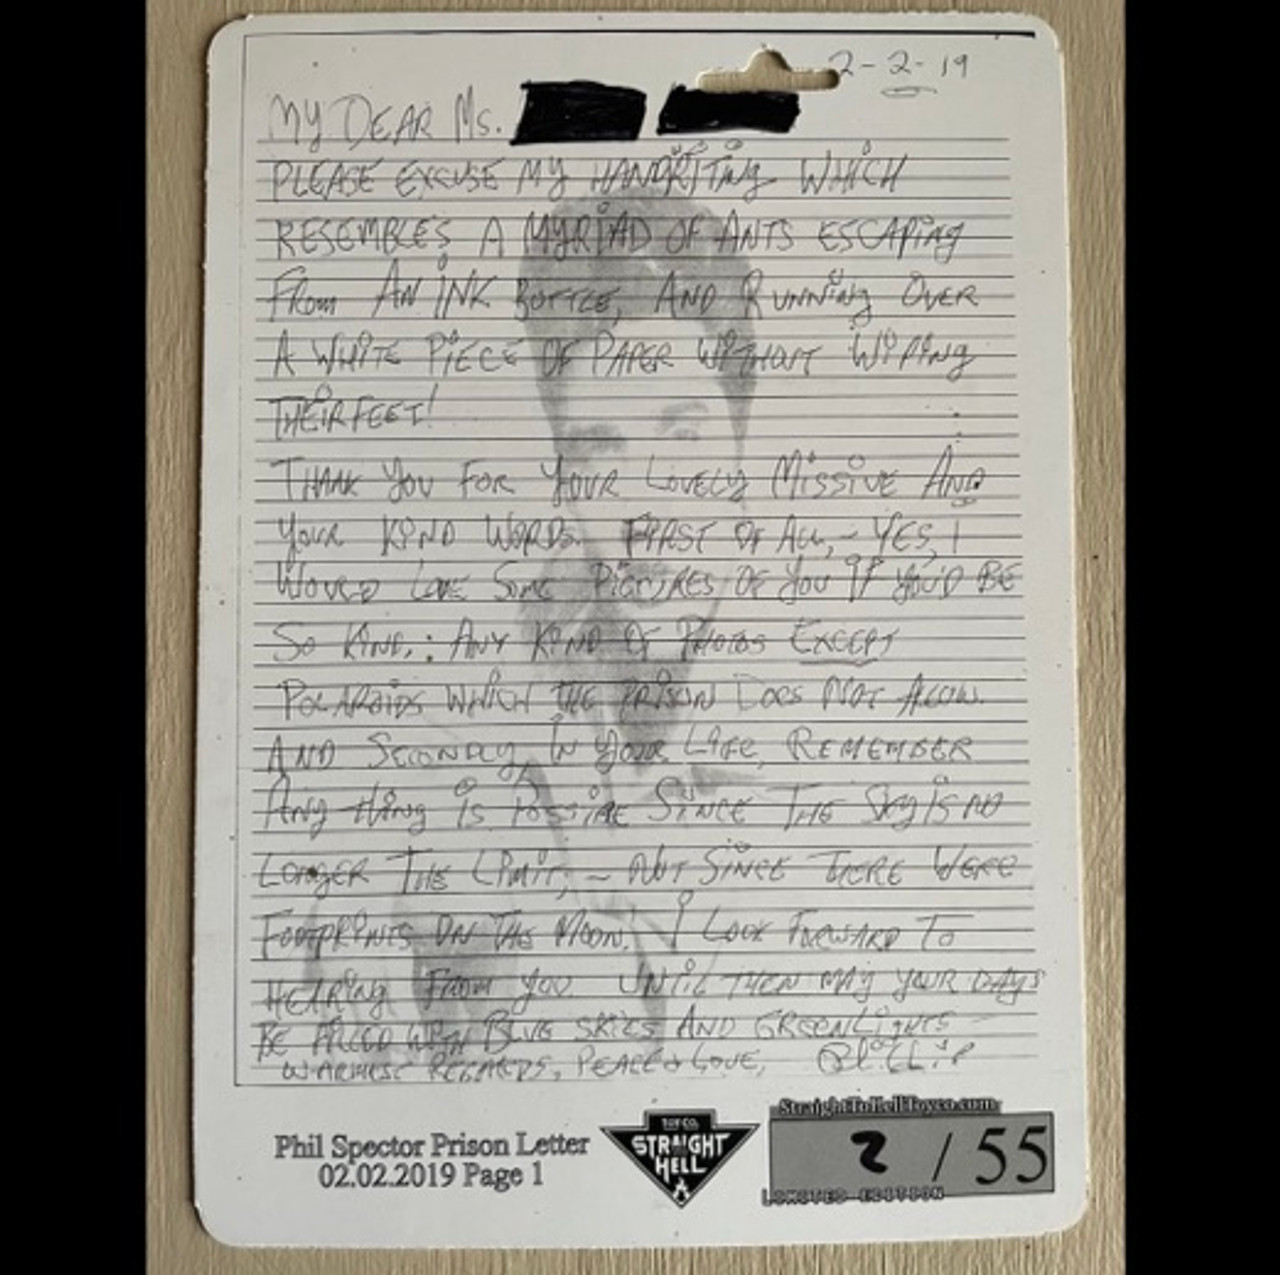 2-2-19
MY DEAR MS.
PLEASE EXCUSE MY HANDRITING WHICH
RESEMBLES A MYRIAD OF ANTS ESCAPING
FROM AN INK BOTTLE, AND RUNNING OVER
A WHITE PIECE OF PAPER WITHOUT WIPING
THEIR FEET!
THANK YOU FOR YOUR LOVELY MISSIVE AND
YOUR KIND WORDS. FIRST OF ALL, - YES, I
WOULD LOVE SOME PICTURES OF YOU IF YOU'D BE
SO KIND,: ANY KIND OF PHOTOS EXCEPT
POLAROIDS WHICH THE PRISON DOES NOT ALLOW.
AND SECONDLY, IN YOUR LIFE, REMEMBER
ANY THING IS POSSIBLE SINCE THE SKY IS NO
LONGER THE LIMIT, - NOT SINCE THERE WERE
FOOTPRINTS ON THE MOON! I LOOK FORWARD TO
HEARING FROM YOU. UNTIL THEN MAY YOUR DAYS
BE FILLED WITH BLUE SKIES AND GREEN LIGHTS
WARMEST REGARDS, PEACE & LOVE, Phillip
StraightToHellToyco.com
Phil Spector Prison Letter
02.02.2019 Page 1
TOY CO.
STRAIGHT
TO
HELL
2 / 55
LIMITED EDITION